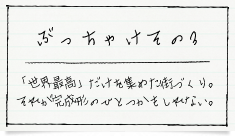 ぶっちゃけその3
「世界最高」だけを集めた街づくり。
それが完成形のひとつかもしれない。